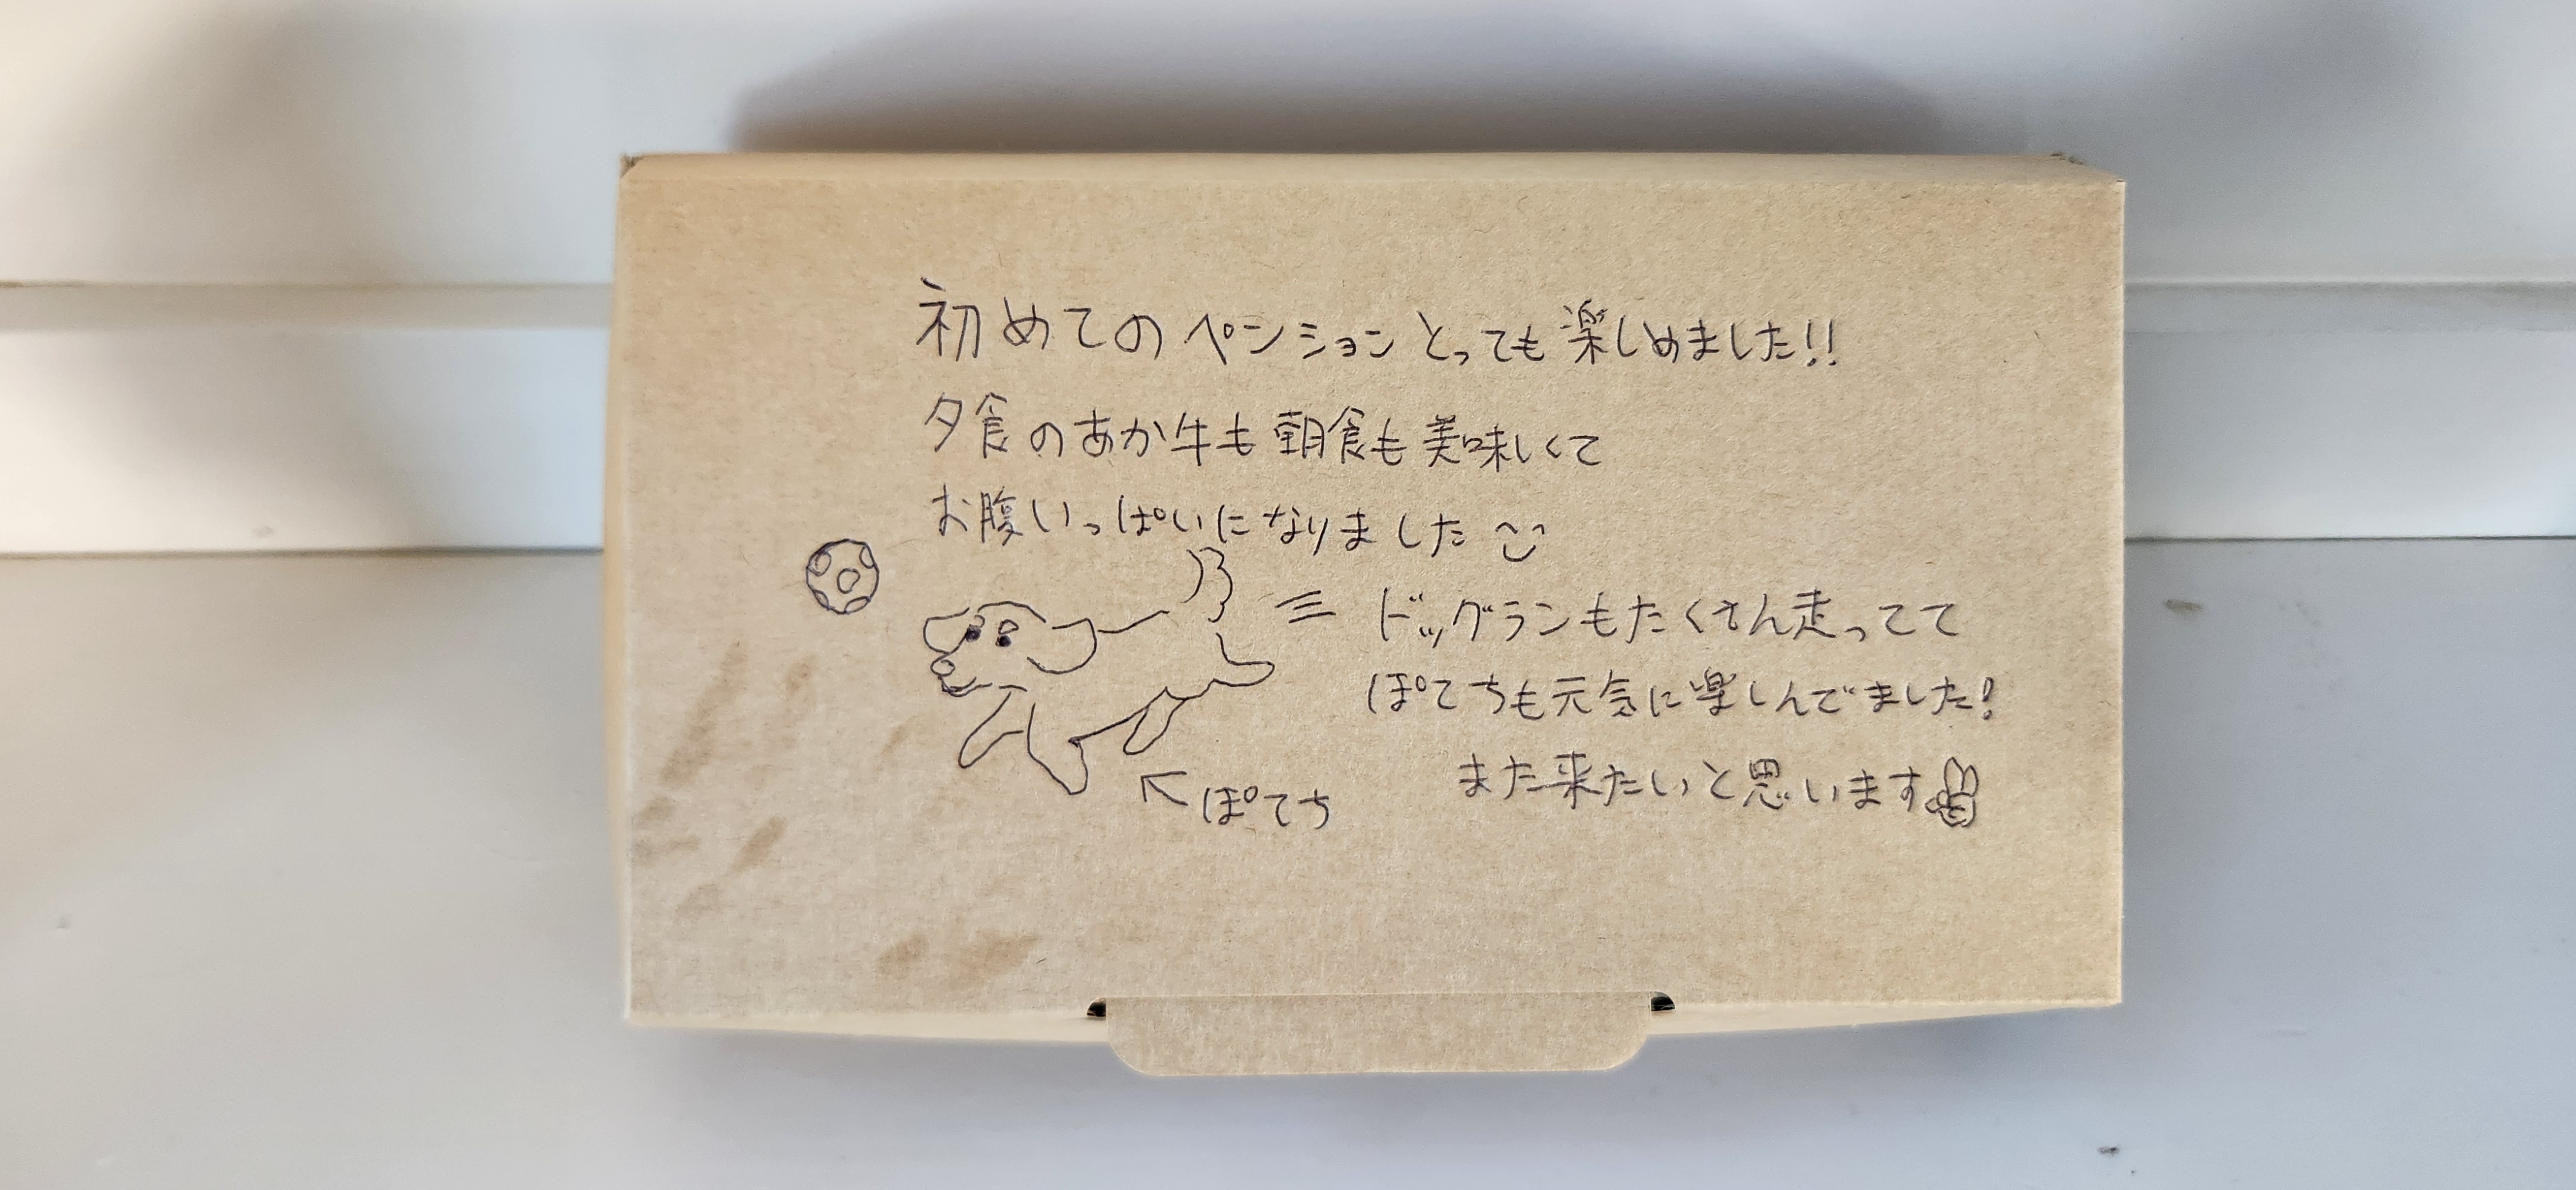 初めてのペンションとっても楽しめました!!
夕食のあか牛も朝食も美味しくて
お腹いっぱいになりました
ドッグランもたくさん走ってて
ぽてちも元気に楽しんでました!
また来たいと思います
ぽてち